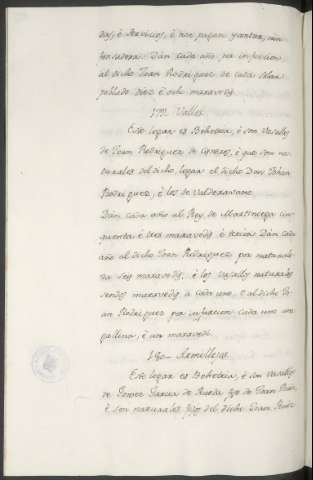 dos, é servicios, é non pagan yantar, nin
fonsadera. Dan cada año por infurcion
al dicho Joan Rodriguez de cada solar
poblado diez é ocho maravedis.
179. Valles
Este logar es Behetria, é son Vasallos
de Joan Rodriguez de Cisneros, é que son na-
turales del dicho logar el dicho Don Johan
Rodriguez, é los de Valderavano.
Dan cada año al Rey de Martiniega cin-
quenta é tres maravedis é tercia: Dan cada
año al dicho Joan Rodriguez por naturale-
da seis maravedis, é los Vasallos naturales
sendos maravedis a cada uno, é al dicho Jo-
an Rodriguez por infurcion cada uno un
gallina, é un maravedi.
180. Armellas
Este logar es Behetria, é son Vasallos
de Gomez Garcia de fijo de Joan
é son naturales fijo del dicho Joan